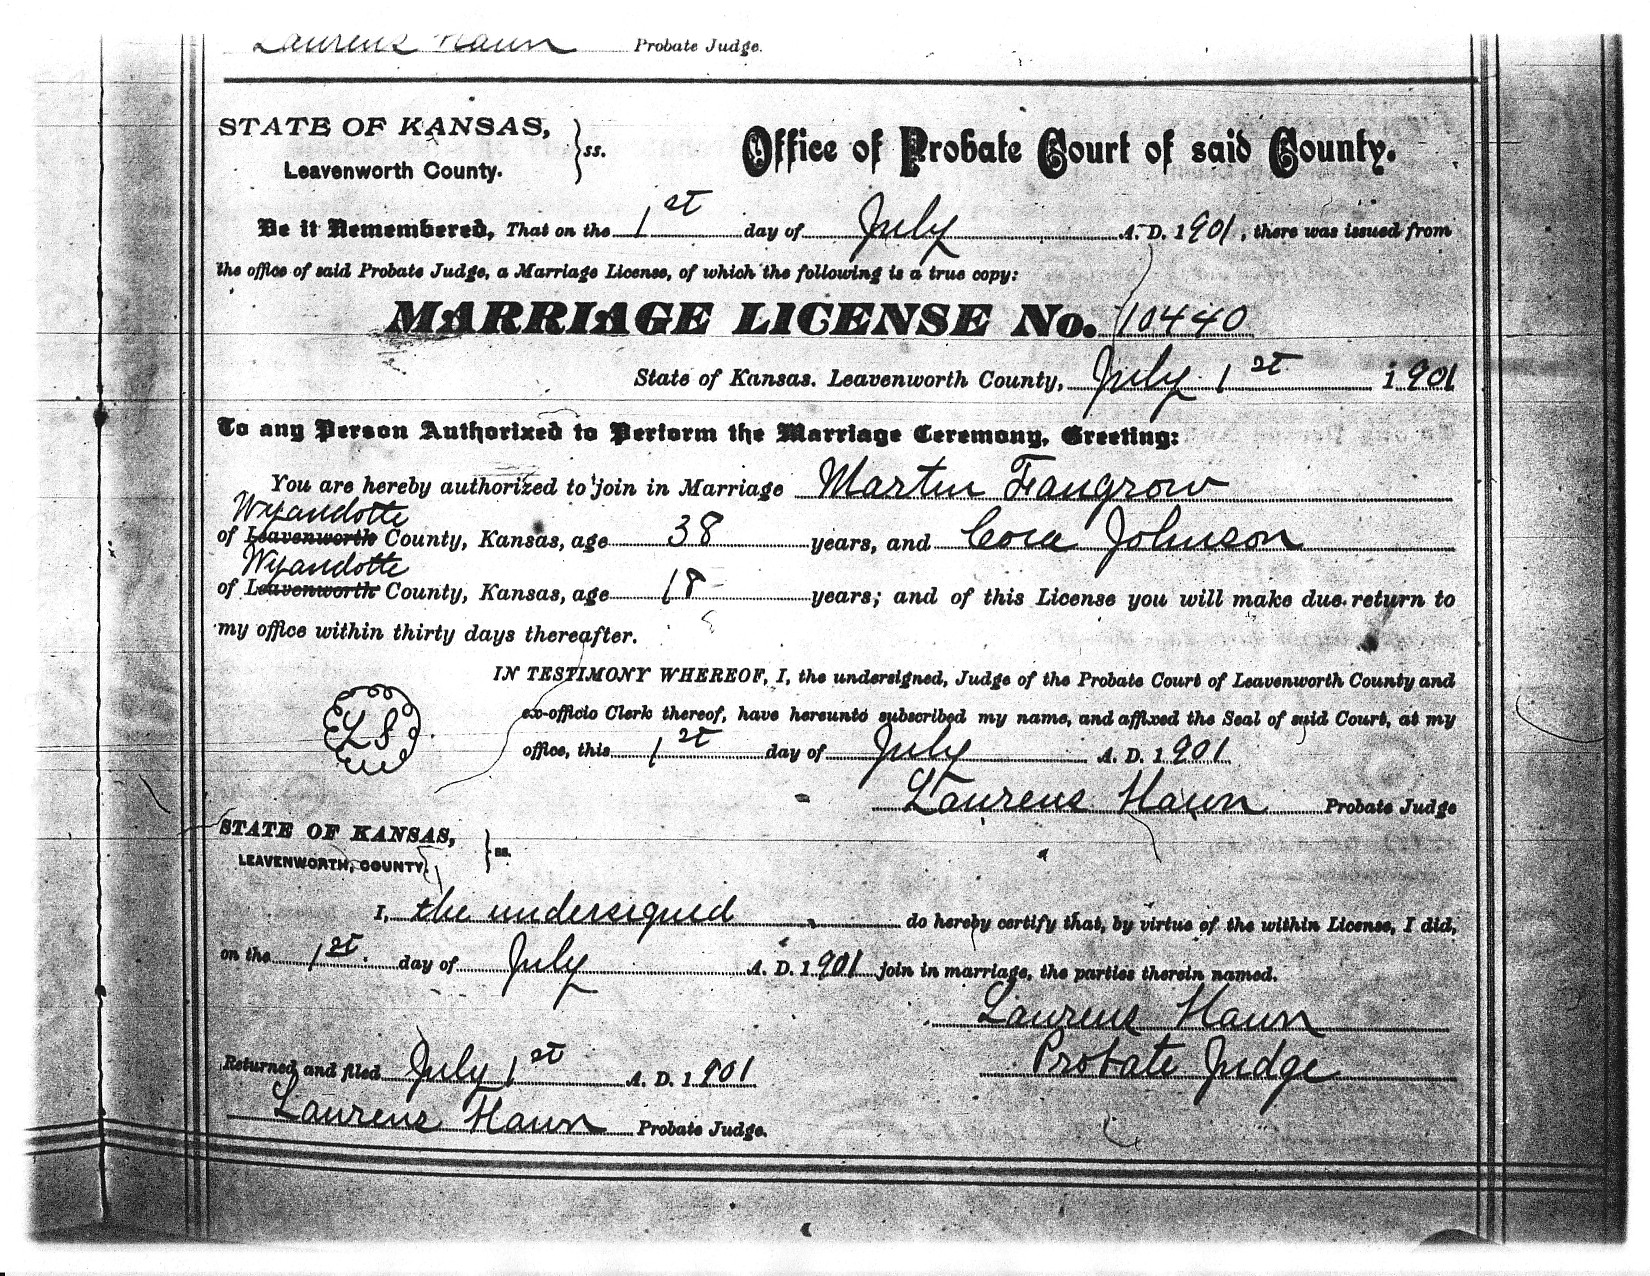 Laurens Hawn Probate Judge.
STATE OF KANSAS, } ss.
Leavenworth County.
Office of Probate Court of said County.
Be it Remembered, That on the 1st day of July A. D. 1901, there was issued from
the office of said Probate Judge, a Marriage License, of which the following is a true copy:
MARRIAGE LICENSE No. 10440
State of Kansas. Leavenworth County, July 1st 1901
To any Person Authorized to Perform the Marriage Ceremony, Greeting:
You are hereby authorized to join in Marriage Martin Fangrow
Wyandotte
of Leavenworth County, Kansas, age 38 years, and Cora Johnson
Wyandotte
of Leavenworth County, Kansas, age 18 years; and of this License you will make due return to
my office within thirty days thereafter.
IN TESTIMONY WHEREOF, I, the undersigned, Judge of the Probate Court of Leavenworth County and
ex-officio Clerk thereof, have hereunto subscribed my name, and affixed the Seal of said Court, at my
LS
office, this 1st day of July A. D. 1901
Laurens Hawn Probate Judge
STATE OF KANSAS, } ss.
LEAVENWORTH, COUNTY.
I, the undersigned do hereby certify that, by virtue of the within License, I did,
on the 1st. day of July A. D. 1901 join in marriage, the parties therein named.
Laurens Hawn
Probate Judge
Returned and filed July 1st A. D. 1901
Laurens Hawn Probate Judge.